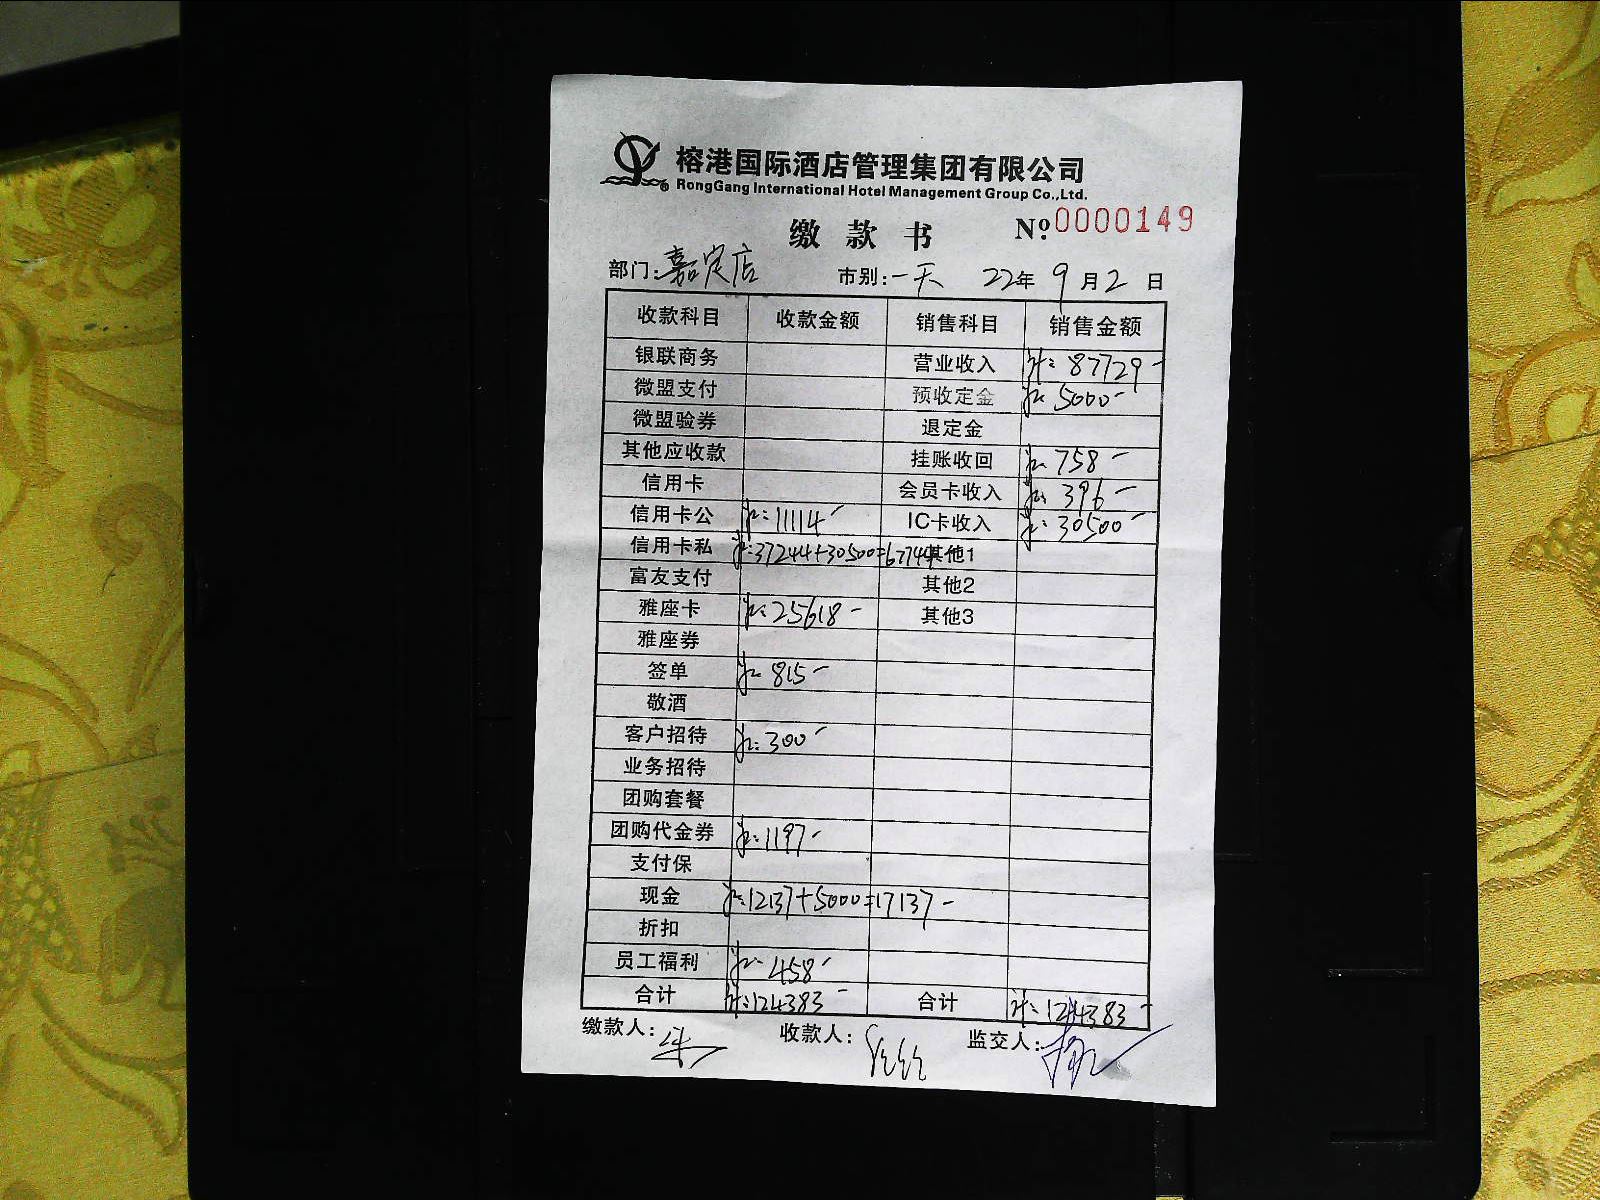 榕港国际酒店管理集团有限公司
RongGang International Hotel Management Group Co.,Ltd.
缴款书 Nº.0000149
部门:嘉定店 市别:一天 22年9月2日
收款科目 收款金额 销售科目 销售金额
银联商务 营业收入 计:87729-
微盟支付 预收定金 计:5000-
微盟验券 退定金
其他应收款 挂账收回 计:758-
信用卡 会员卡收入 计:396-
信用卡公 计:11114- IC卡收入 计:30500-
信用卡私 计:37244+30500=67744 其他1
富友支付 其他2
雅座卡 计:25618- 其他3
雅座券
签单 计:815-
敬酒
客户招待 计:300-
业务招待
团购套餐
团购代金券 计:1197-
支付保
现金 计:12137+5000=17137-
折扣
员工福利 计:458-
合计 计:124383- 合计 计:124383-
缴款人: 收款人: 监交人: